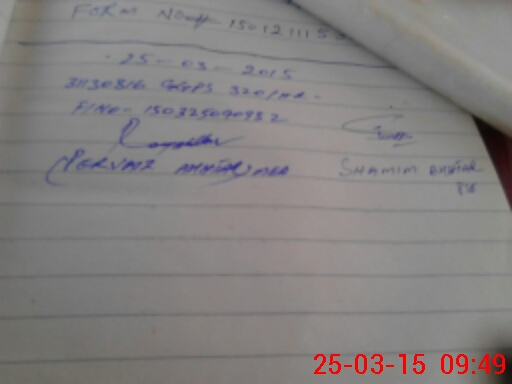 FORM NO 150121115
25-03-2015
31130816 GGPS 320/HR-
FINO- 150325090932
(PERVAIZ AKHTAR) MEA
SHAMIM AKHTAR
25-03-15 09:49